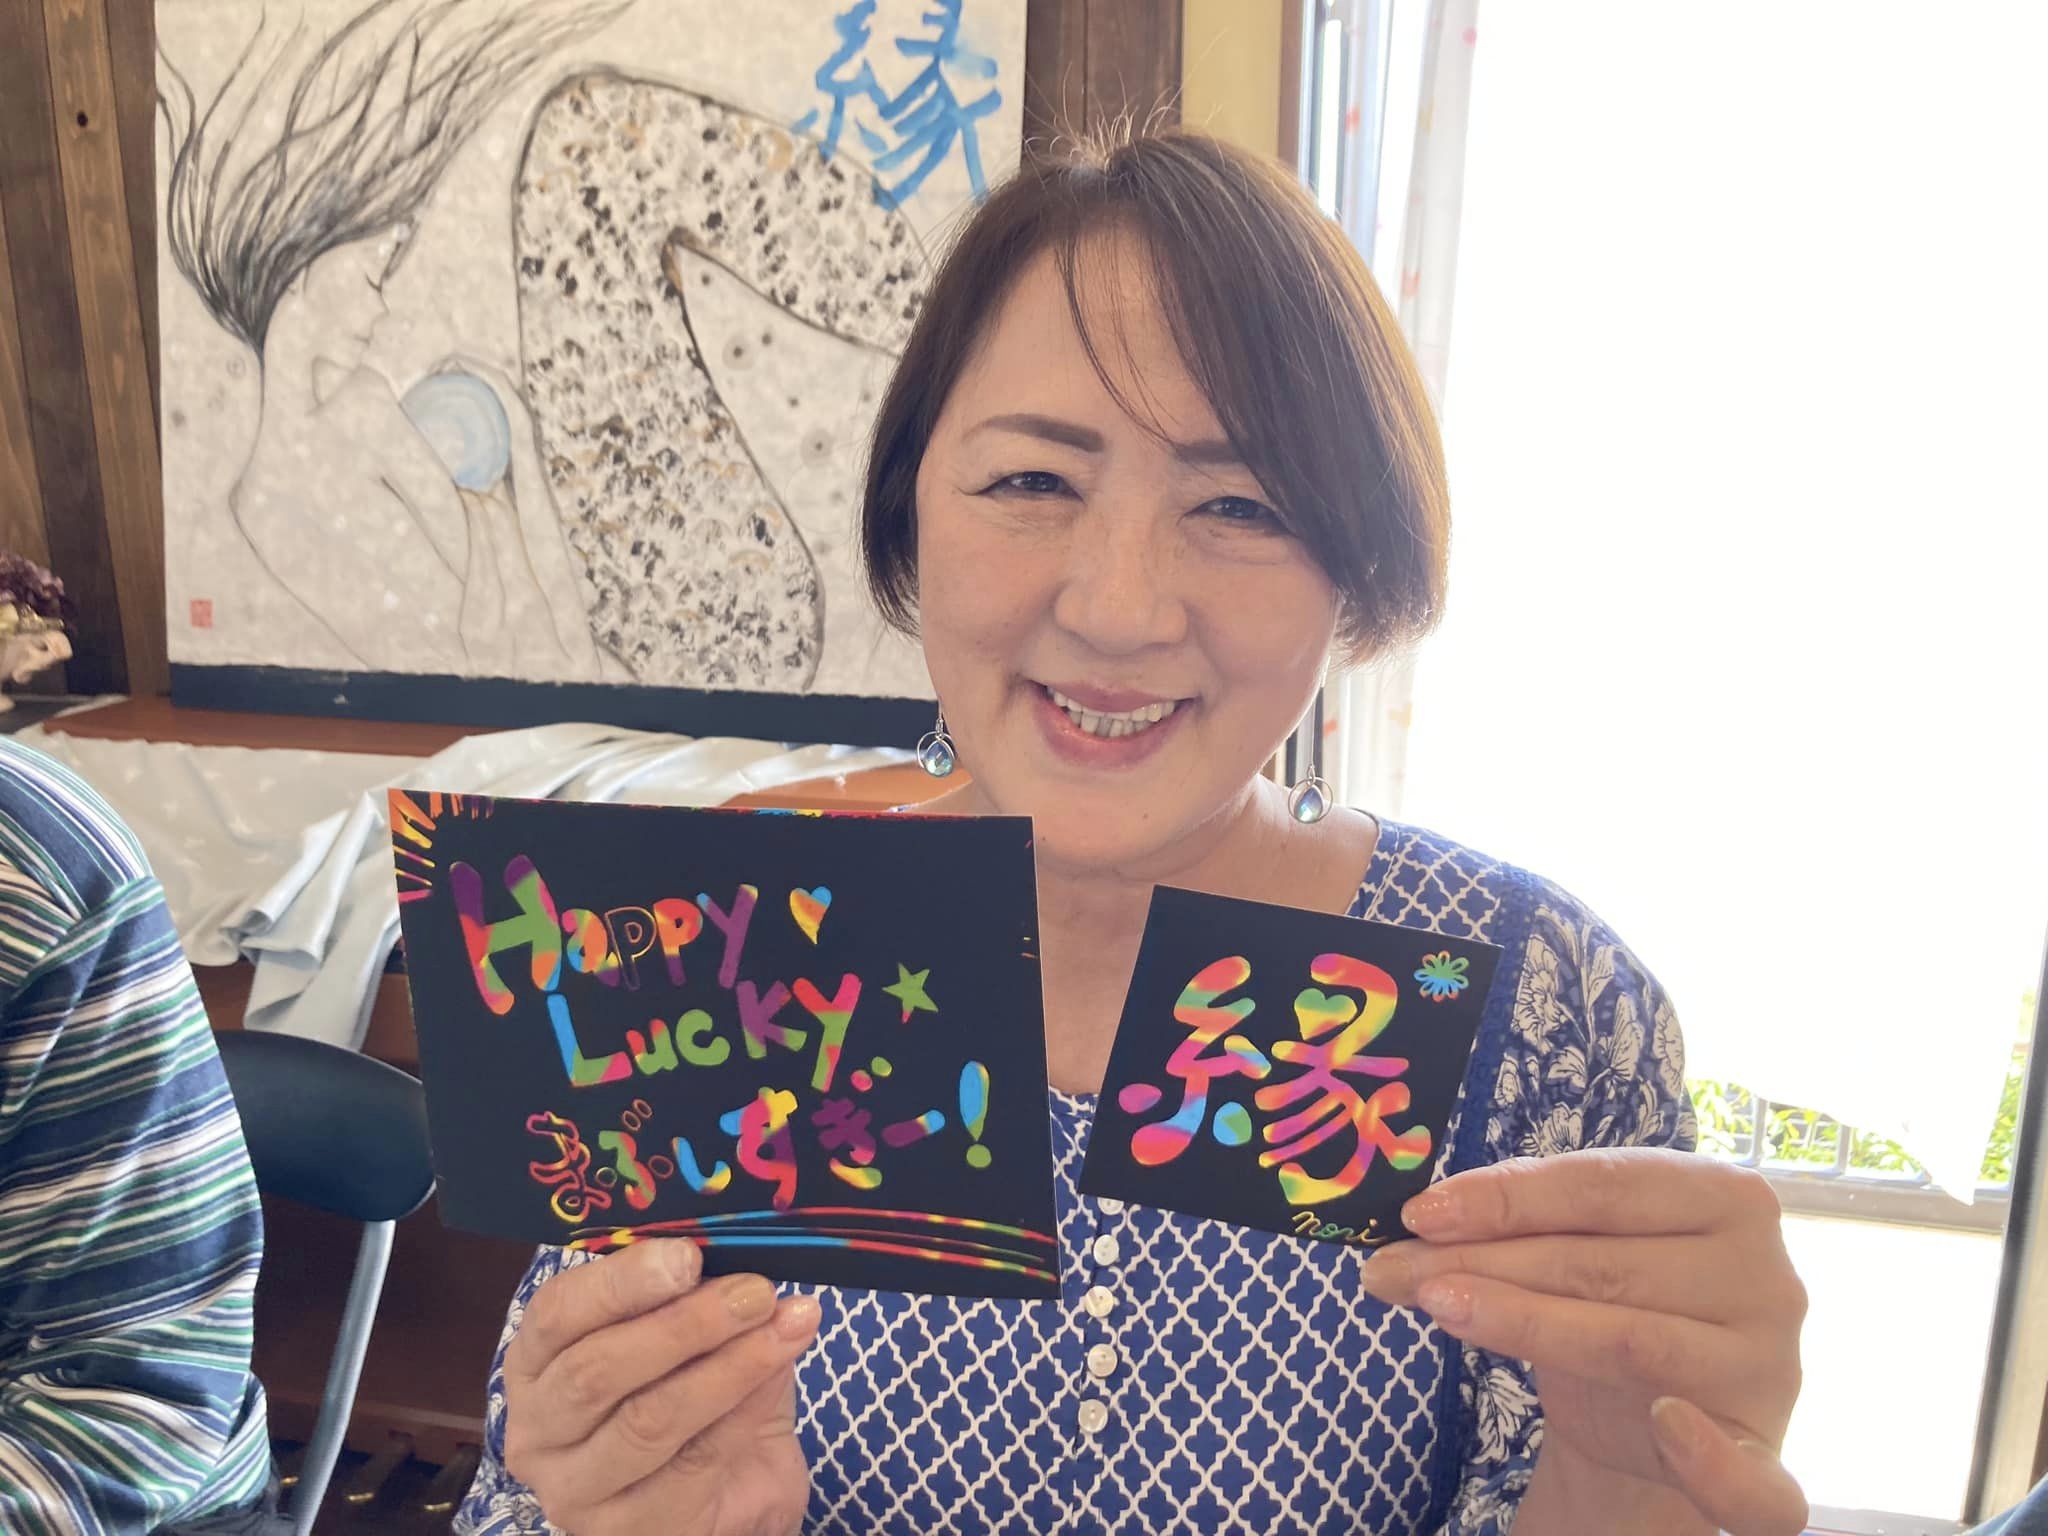 縁
Happy
Lucky
まぶしすぎー!
縁
nori